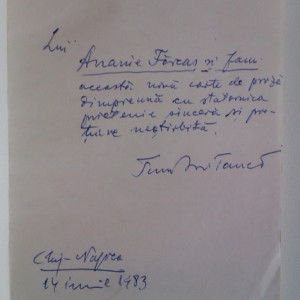 Lui
Ananie Fărcaș și fam.
această nouă carte de proză
dimpreună cu statornica
prietenie sinceră și pre-
țuire neștirbită.
Cluj-Napoca
14 iunie 1983